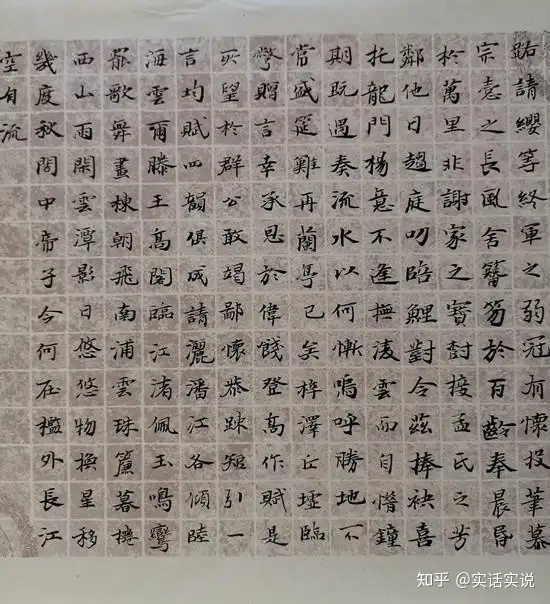 路請纓等終軍之弱冠有懷投筆慕
宗慤之長風舍簪笏於百齡奉晨昏
於萬里非謝家之寶樹接孟氏之芳
鄰他日趨庭叨陪鯉對今茲捧袂喜
托龍門楊意不逢撫凌雲而自惜鐘
期既遇奏流水以何慚嗚呼勝地不
常盛筵難再蘭亭已矣梓澤丘墟臨
彆贈言幸承恩於偉餞登高作賦是
所望於群公敢竭鄙懷恭疎短引一
言均賦四韻俱成請灑潘江各傾陸
海雲爾滕王高閣臨江渚佩玉鳴鸞
罷歌舞畫棟朝飛南浦雲珠簾暮捲
西山雨閑雲潭影日悠悠物換星移
幾度秋閣中帝子今何在檻外長江
空自流
知乎 @实话实说